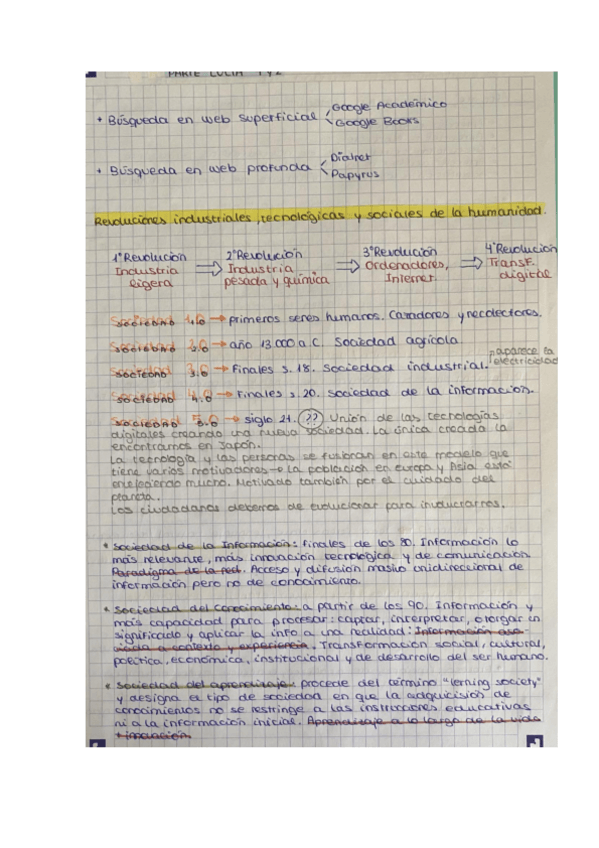 PARTE LUCÍA 1 y 2
+ Búsqueda en web superficial
Google Académico
Google Books
+ Búsqueda en web profunda
Dialnet
Papyrus
Revoluciones industriales, tecnológicas y sociales de la humanidad.
1ª Revolución → 2ª Revolución → 3ª Revolución → 4ª Revolución
Industria Industria Ordenadores, Transf.
ligera pesada y química Internet digital
Sociedad 1.0 → primeros seres humanos. Cazadores y recolectores.
Sociedad 2.0 → año 13.000 a.C. Sociedad agrícola
Sociedad 3.0 → Finales s. 18. Sociedad industrial. aparece la electricidad
Sociedad 4.0 → Finales s. 20. Sociedad de la información.
Sociedad 5.0 → siglo 21. ?? Unión de las tecnologías
digitales creando una nueva sociedad. La única creada la
encontramos en Japón.
La tecnología y las personas se fusionan en este modelo que
tiene varios motivadores → la población en Europa y Asia está
envejeciendo mucho. Motivado también por el cuidado del
planeta.
Los ciudadanos debemos de evolucionar para involucrarnos.
• Sociedad de la Información: finales de los 80. Información lo
más relevante, más innovación tecnológica y de comunicación
Paradigma de la red. Acceso y difusión masivo unidireccional de
información pero no de conocimiento.
• Sociedad del conocimiento: a partir de los 90. Información y
más capacidad para procesar: captar, interpretar, otorgar un
significado y aplicar la info a una realidad: Información aso
ciada a contexto y experiencia. Transformación social, cultural,
política, económica, institucional y de desarrollo del ser humano.
• Sociedad del aprendizaje: procede del término "lerning society"
y designa el tipo de sociedad en que la adquicisión de
conocimientos no se restringe a las instrucciones educativas
ni a la información inicial. Aprendizaje a lo largo de la vida
+ innovación